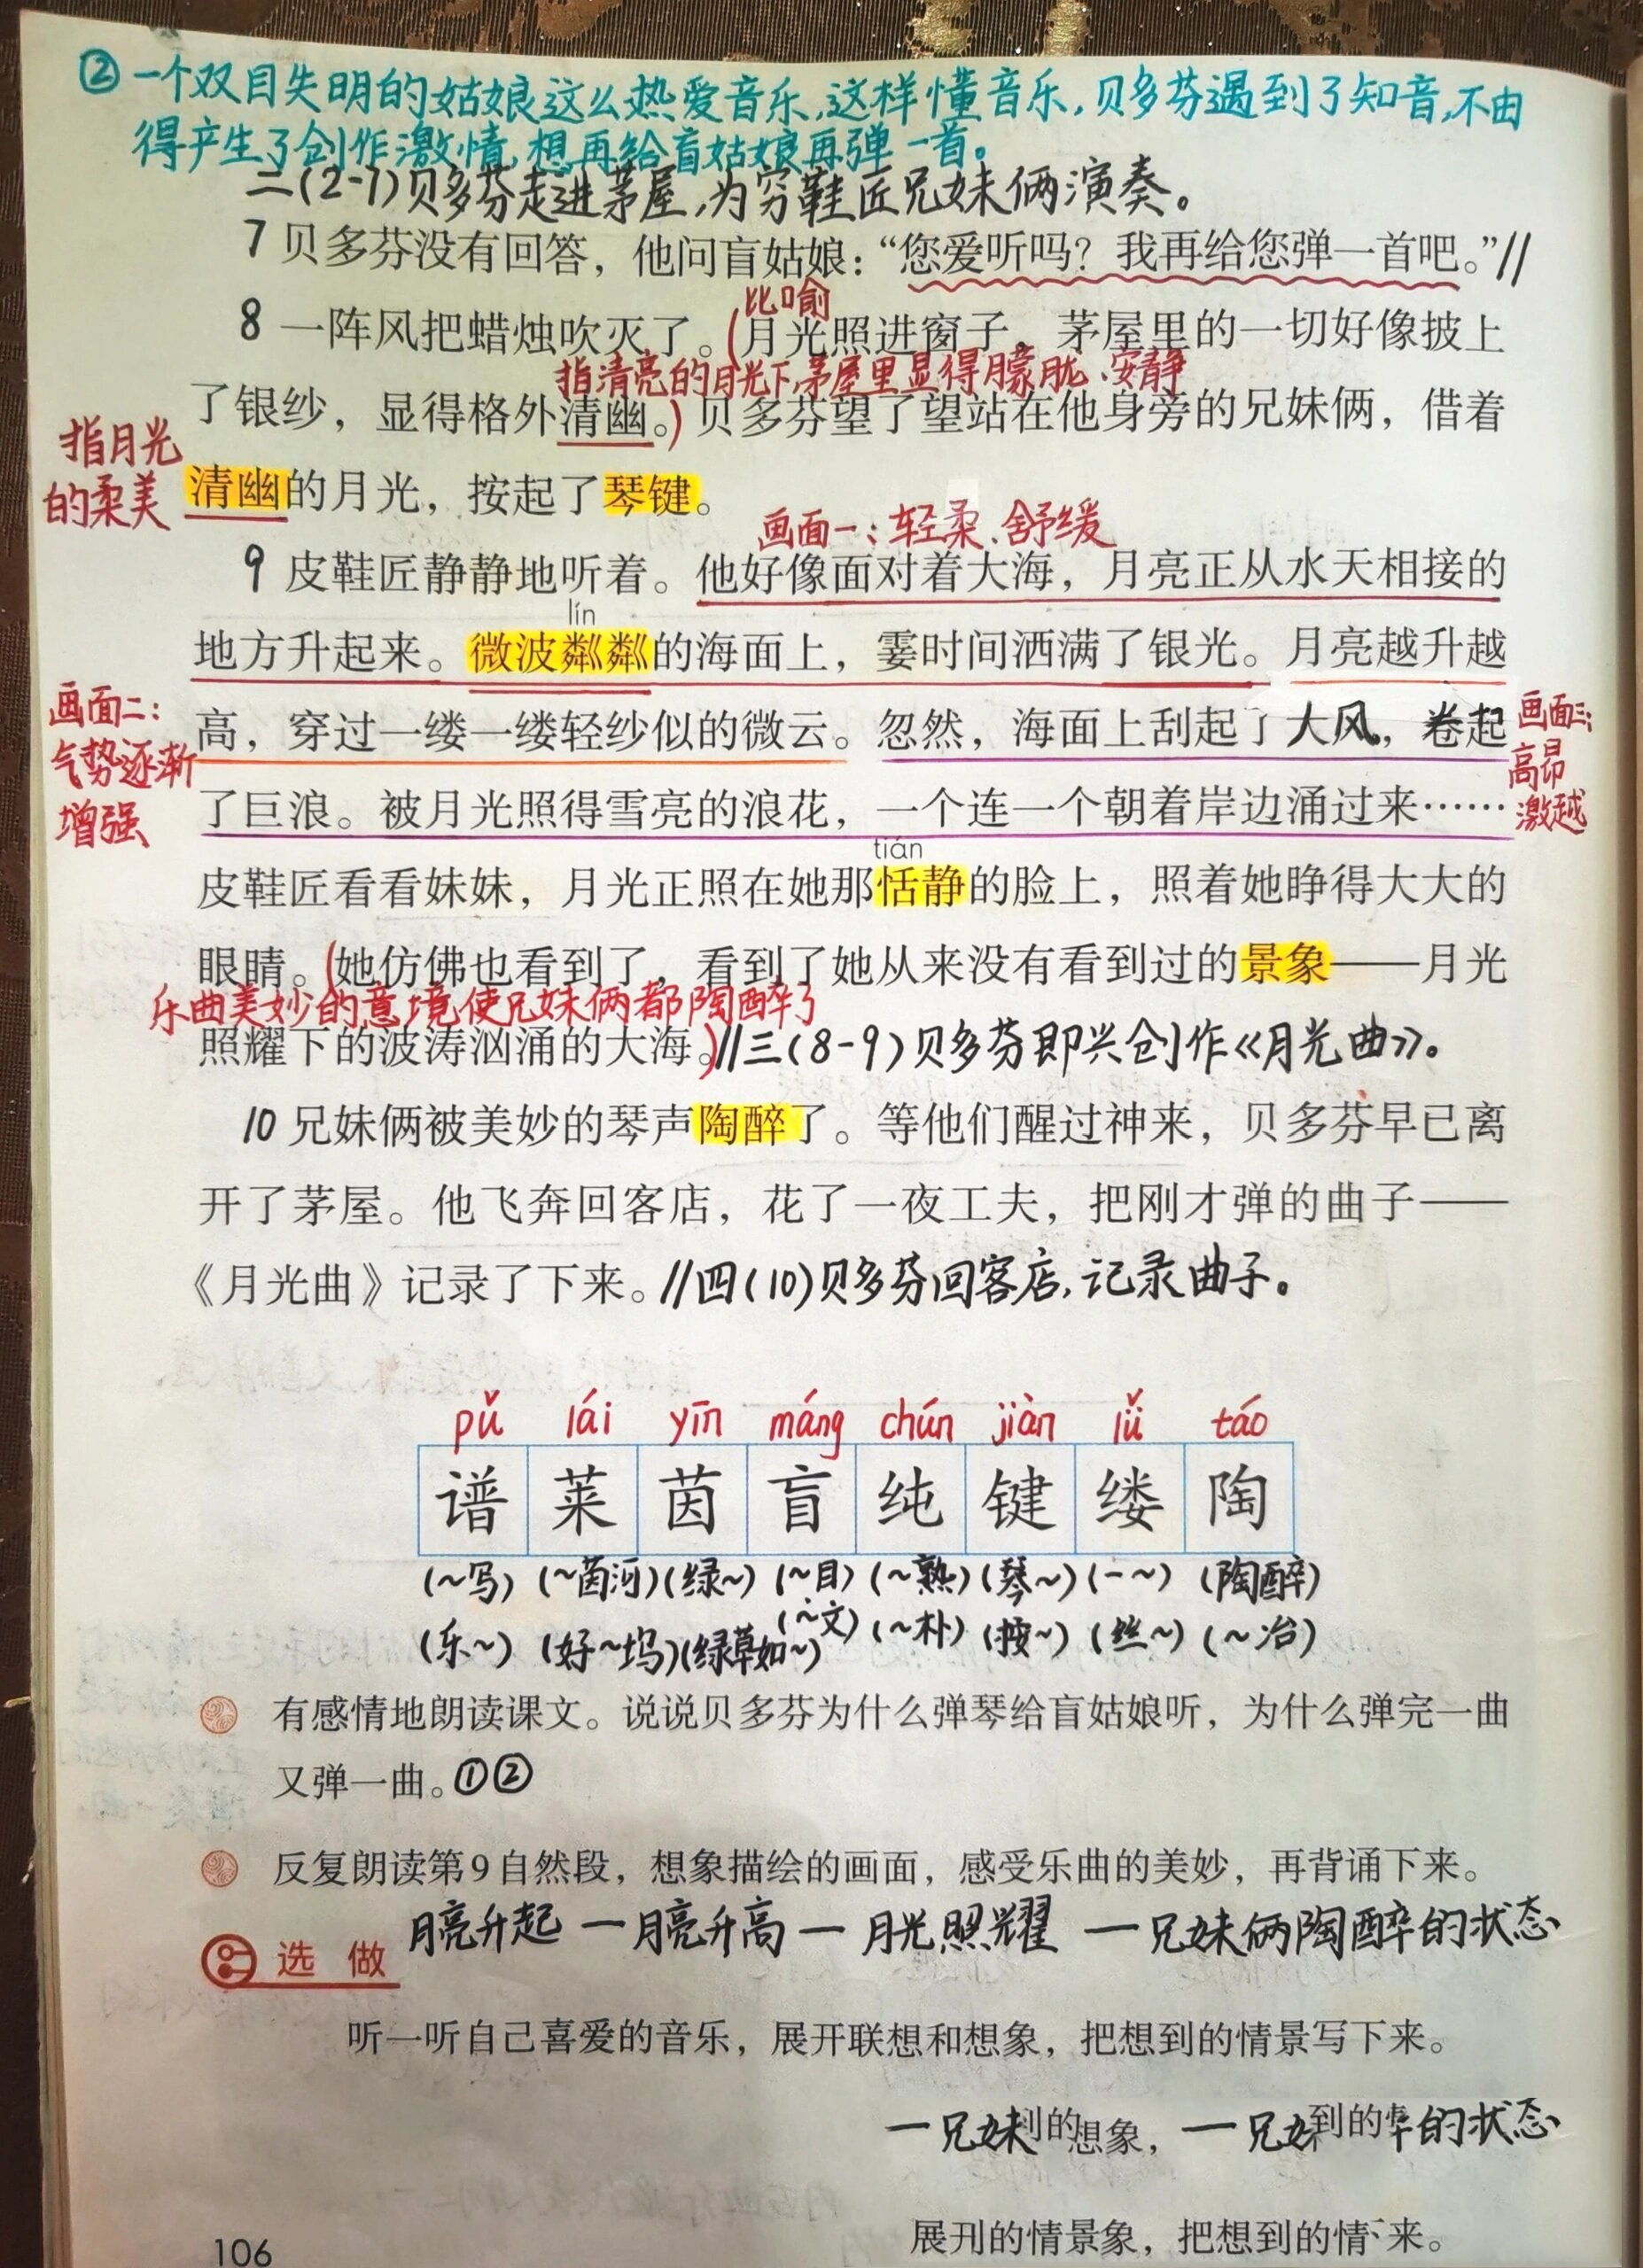 ②一个双目失明的姑娘这么热爱音乐,这样懂音乐,贝多芬遇到了知音,不由
得产生了创作激情,想再给盲姑娘再弹一首。
二(2-7)贝多芬走进茅屋,为穷鞋匠兄妹俩演奏。
7 贝多芬没有回答，他问盲姑娘：“您爱听吗？我再给您弹一首吧。”//
比喻
8 一阵风把蜡烛吹灭了。(月光照进窗子，茅屋里的一切好像披上
指清亮的月光下,茅屋里显得朦胧、安静
了银纱，显得格外清幽。)贝多芬望了望站在他身旁的兄妹俩，借着
指月光
的柔美
清幽的月光，按起了琴键。
画面一:轻柔、舒缓
9 皮鞋匠静静地听着。他好像面对着大海，月亮正从水天相接的
lín
地方升起来。微波粼粼的海面上，霎时间洒满了银光。月亮越升越
画面二:
气势逐渐
增强
高，穿过一缕一缕轻纱似的微云。忽然，海面上刮起了大风，卷起
画面三:
高昂
激越
了巨浪。被月光照得雪亮的浪花，一个连一个朝着岸边涌过来……
tián
皮鞋匠看看妹妹，月光正照在她那恬静的脸上，照着她睁得大大的
眼睛。(她仿佛也看到了，看到了她从来没有看到过的景象——月光
乐曲美妙的意境使兄妹俩都陶醉了
照耀下的波涛汹涌的大海。)//三(8-9)贝多芬即兴创作《月光曲》。
10 兄妹俩被美妙的琴声陶醉了。等他们醒过神来，贝多芬早已离
开了茅屋。他飞奔回客店，花了一夜工夫，把刚才弹的曲子——
《月光曲》记录了下来。//四(10)贝多芬回客店,记录曲子。
pǔ lái yīn máng chún jiàn lǚ táo
谱 莱 茵 盲 纯 键 缕 陶
(~写) (~茵河) (绿~) (~目) (~熟) (琴~) (一~) (陶醉)
(乐~) (好~坞) (绿草如~) (~文) (~朴) (按~) (丝~) (~冶)
有感情地朗读课文。说说贝多芬为什么弹琴给盲姑娘听，为什么弹完一曲
又弹一曲。①②
反复朗读第9自然段，想象描绘的画面，感受乐曲的美妙，再背诵下来。
月亮升起一月亮升高一月光照耀一兄妹俩陶醉的状态
选做
听一听自己喜爱的音乐，展开联想和想象，把想到的情景写下来。
一兄妹到的想象，一兄 到的 的状态
展刊的情景象，把想到的情 来。
106